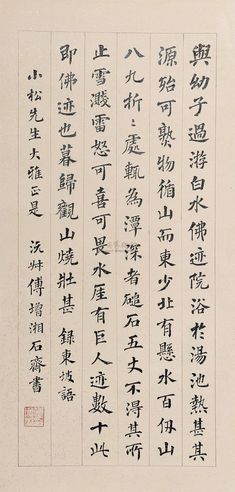 與幼子過游白水佛迹院浴於湯池熱甚其
源殆可熟物循山而東少北有懸水百仞山
八九折〻處輒為潭深者磓石五丈不得其所
止雪濺雷怒可喜可畏水厓有巨人迹數十此
即佛迹也暮歸觀山燒壯甚 錄東坡語
小松先生大雅正是 沅叔傅增湘石齋書